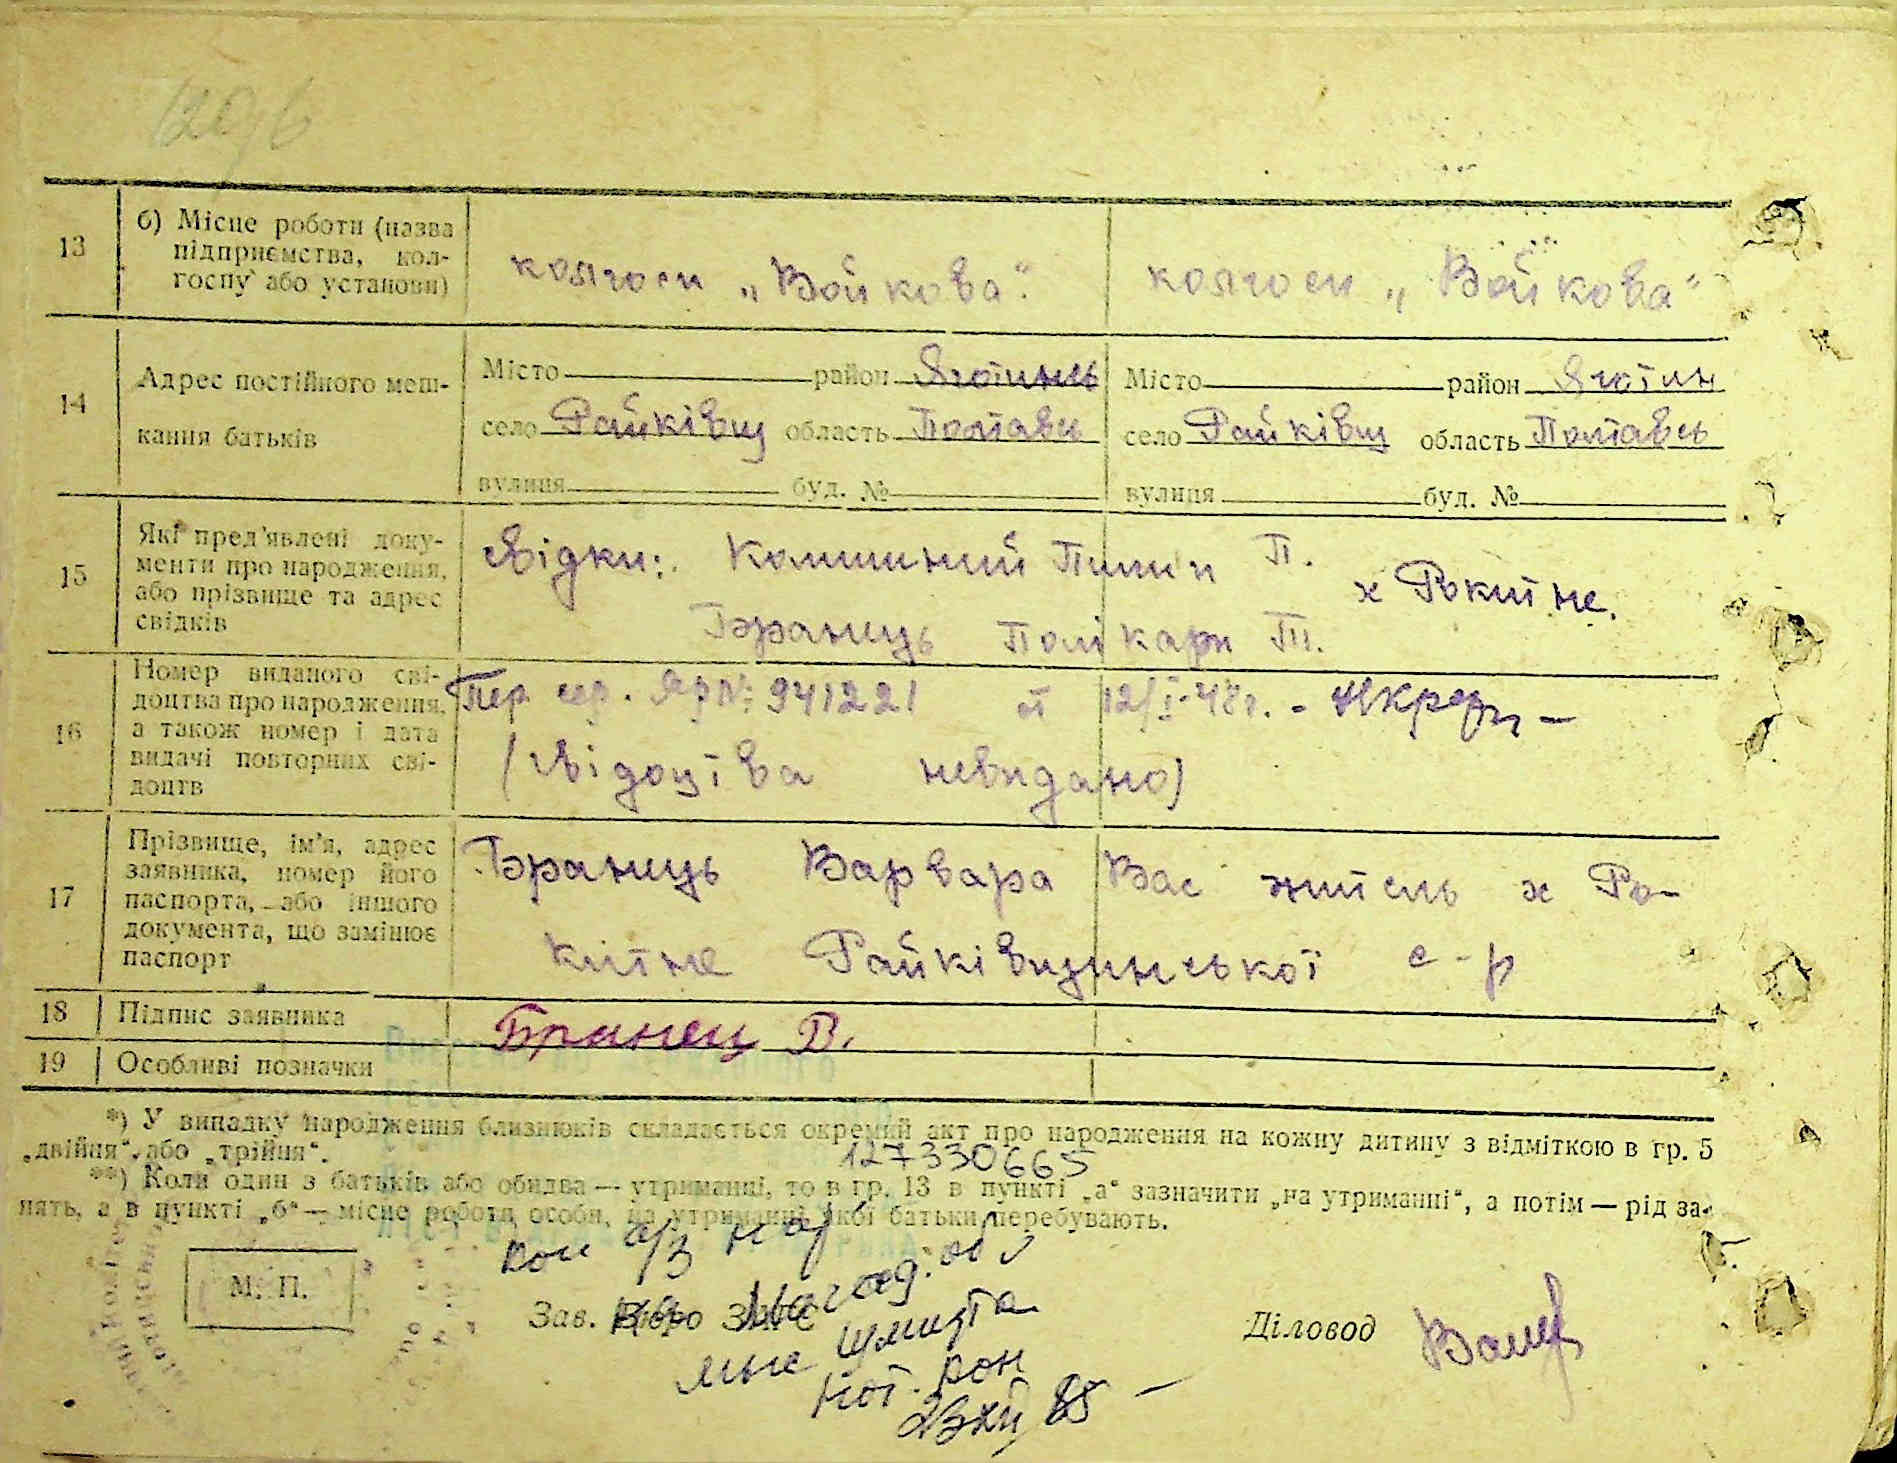 13
б) Місце роботи (назва
підприємства, кол-
госпу або установи)
колгосп „Войкова“.
колгосп „Войкова“
14
Адрес постійного меш-
кання батьків
Місто район Яготинсь
село Райківщ область Полтавсь
вулиця буд. №
Місто район Яготин
село Райківщ область Полтавсь
вулиця буд. №
15
Які пред'явлені доку-
менти про народження,
або прізвище та адрес
свідків
свідки: Калишний Пилип П.
Бранець Полікарп
х Рокитне.
16
Номер виданого сві-
доцтва про народження,
а також номер і дата
видачі повторних сві-
доцтв
сер. № 941221 12/І-48г.
(свідоцтва невидано)
17
Прізвище, ім'я, адрес
заявника, номер його
паспорта, або іншого
документа, що замінює
паспорт
Бранець Варвара Вас житель х Ро-
китне Райківщинської с-р
18
Підпис заявника
Бранец В.
19
Особливі позначки
*) У випадку народження близнюків складається окремий акт про народження на кожну дитину з відміткою в гр. 5
„двійня“ або „трійня“.
127330665
**) Коли один з батьків або обидва — утриманці, то в гр. 13 в пункті „а“ зазначити „на утриманні“, а потім — рід за-
нять, а в пункті „б“ — місце роботи особи, на утриманні якої батьки перебувають.
М. П.
Зав. Бюро ЗАГС
Діловод